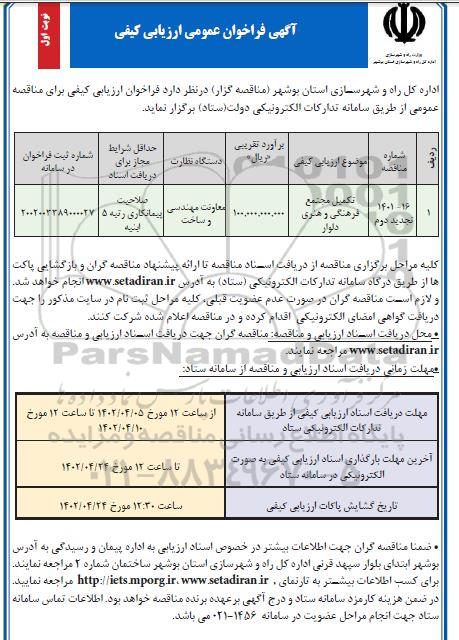 نوبت اول
آگهی فراخوان عمومی ارزیابی کیفی
وزارت راه و شهرسازی
اداره کل راه و شهرسازی استان بوشهر
اداره کل راه و شهرسازی استان بوشهر (مناقصه گزار) درنظر دارد فراخوان ارزیابی کیفی برای مناقصه
عمومی از طریق سامانه تدارکات الکترونیکی دولت(ستاد) برگزار نماید.
ردیف
شماره مناقصه
موضوع ارزیابی کیفی
برآورد تقریبی «ریال»
دستگاه نظارت
حداقل شرایط مجاز برای دریافت اسناد
شماره ثبت فراخوان در سامانه
۱
۱۶-۱۴۰۱ تجدید دوم
تکمیل مجتمع فرهنگی و هنری دلوار
۱۰۰,۰۰۰,۰۰۰,۰۰۰
معاونت مهندسی و ساخت
صلاحیت پیمانکاری رتبه ۵ ابنیه
۲۰۰۲۰۰۳۳۸۹۰۰۰۰۲۷
کلیه مراحل برگزاری مناقصه از دریافت اسناد مناقصه تا ارائه پیشنهاد مناقصه گران و بازگشایی پاکت
ها از طریق درگاه سامانه تدارکات الکترونیکی (ستاد) به آدرس www.setadiran.ir انجام خواهد شد.
و لازم است مناقصه گران در صورت عدم عضویت قبلی، کلیه مراحل ثبت نام در سایت مذکور را جهت
دریافت گواهی امضای الکترونیکی اقدام کرده و در مناقصه اعلام شده شرکت کنند.
• محل دریافت اسناد ارزیابی و مناقصه: مناقصه گران جهت دریافت اسناد ارزیابی و مناقصه به آدرس
www.setadiran.ir مراجعه نمایند.
•مهلت زمانی دریافت اسناد ارزیابی و مناقصه از سامانه ستاد:
مهلت دریافت اسناد ارزیابی کیفی از طریق سامانه تدارکات الکترونیکی ستاد
از ساعت ۱۲ مورخ ۱۴۰۲/۰۴/۰۵ تا ساعت ۱۲ مورخ ۱۴۰۲/۰۴/۱۰
آخرین مهلت بارگذاری اسناد ارزیابی کیفی به صورت الکترونیکی در سامانه ستاد
تا ساعت ۱۲ مورخ ۱۴۰۲/۰۴/۲۴
تاریخ گشایش پاکات ارزیابی کیفی
ساعت ۱۲:۳۰ مورخ ۱۴۰۲/۰۴/۲۴
• ضمنا مناقصه گران جهت اطلاعات بیشتر در خصوص اسناد ارزیابی به اداره پیمان و رسیدگی به آدرس
بوشهر ابتدای بلوار سپهد قرنی اداره کل راه و شهرسازی استان بوشهر ساختمان شماره ۲ مراجعه نمایند.
برای کسب اطلاعات بیشتر به تارنمای ، http://iets.mporg.ir، www.setadiran.ir مراجعه نمایید.
در ضمن هزینه کارمزد سامانه ستاد و درج آگهی برعهده برنده مناقصه خواهد بود. اطلاعات تماس سامانه
ستاد جهت انجام مراحل عضویت در سامانه ۱۴۵۶-۰۲۱ می باشد.
ParsNamadData
پایگاه اطلاع رسانی مناقصه و مزایده
۰۲۱-۸۸۳۴۹۶۷۰-۵